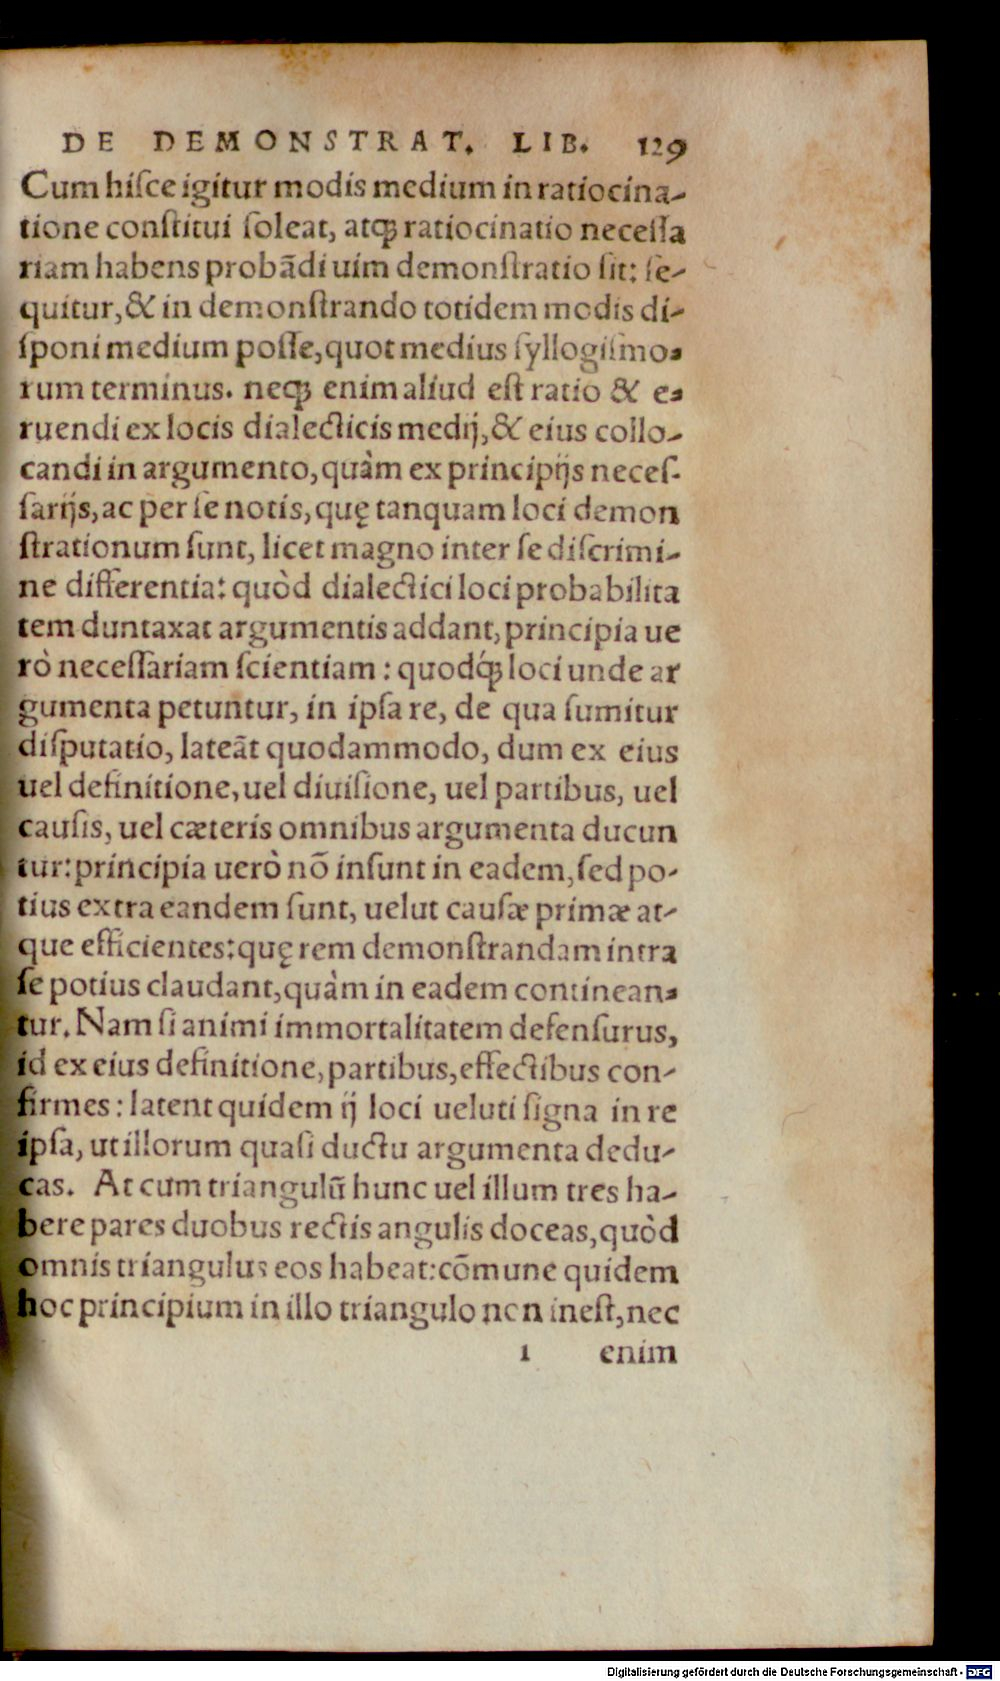 DE DEMONSTRAT. LIB. 129
Cum hiſce igitur modis medium in ratiocina-
tione conſtitui ſoleat, atq́; ratiocinatio neceſſa
riam habens probãdi uim demonſtratio ſit: ſe-
quitur, & in demonſtrando totidem modis di-
ſponi medium poſſe, quot medius ſyllogiſmo-
rum terminus. neq; enim aliud eſt ratio & e-
ruendi ex locis dialecticis medij, & eius collo-
candi in argumento, quàm ex principijs neceſ-
ſarijs, ac per ſe notis, quę tanquam loci demon
ſtrationum ſunt, licet magno inter ſe diſcrimi-
ne differentia: quòd dialectici loci probabilita
tem duntaxat argumentis addant, principia ue
rò neceſſariam ſcientiam: quodq́; loci unde ar
gumenta petuntur, in ipſa re, de qua ſumitur
diſputatio, lateãt quodammodo, dum ex eius
uel definitione, uel diuiſione, uel partibus, uel
cauſis, uel cæteris omnibus argumenta ducun
tur: principia uerò nõ inſunt in eadem, ſed po-
tius extra eandem ſunt, uelut cauſæ primæ at-
que efficientes: quę rem demonſtrandam intra
ſe potius claudant, quàm in eadem continean-
tur. Nam ſi animi immortalitatem defenſurus,
id ex eius definitione, partibus, effectibus con-
firmes: latent quidem ij loci ueluti ſigna in re
ipſa, ut illorum quaſi ductu argumenta dedu-
cas. At cum triangulũ hunc uel illum tres ha-
bere pares duobus rectis angulis doceas, quòd
omnis triangulus eos habeat: cõmune quidem
hoc principium in illo triangulo non ineſt, nec
1 enim
Digitalisierung gefördert durch die Deutsche Forschungsgemeinschaft - DFG